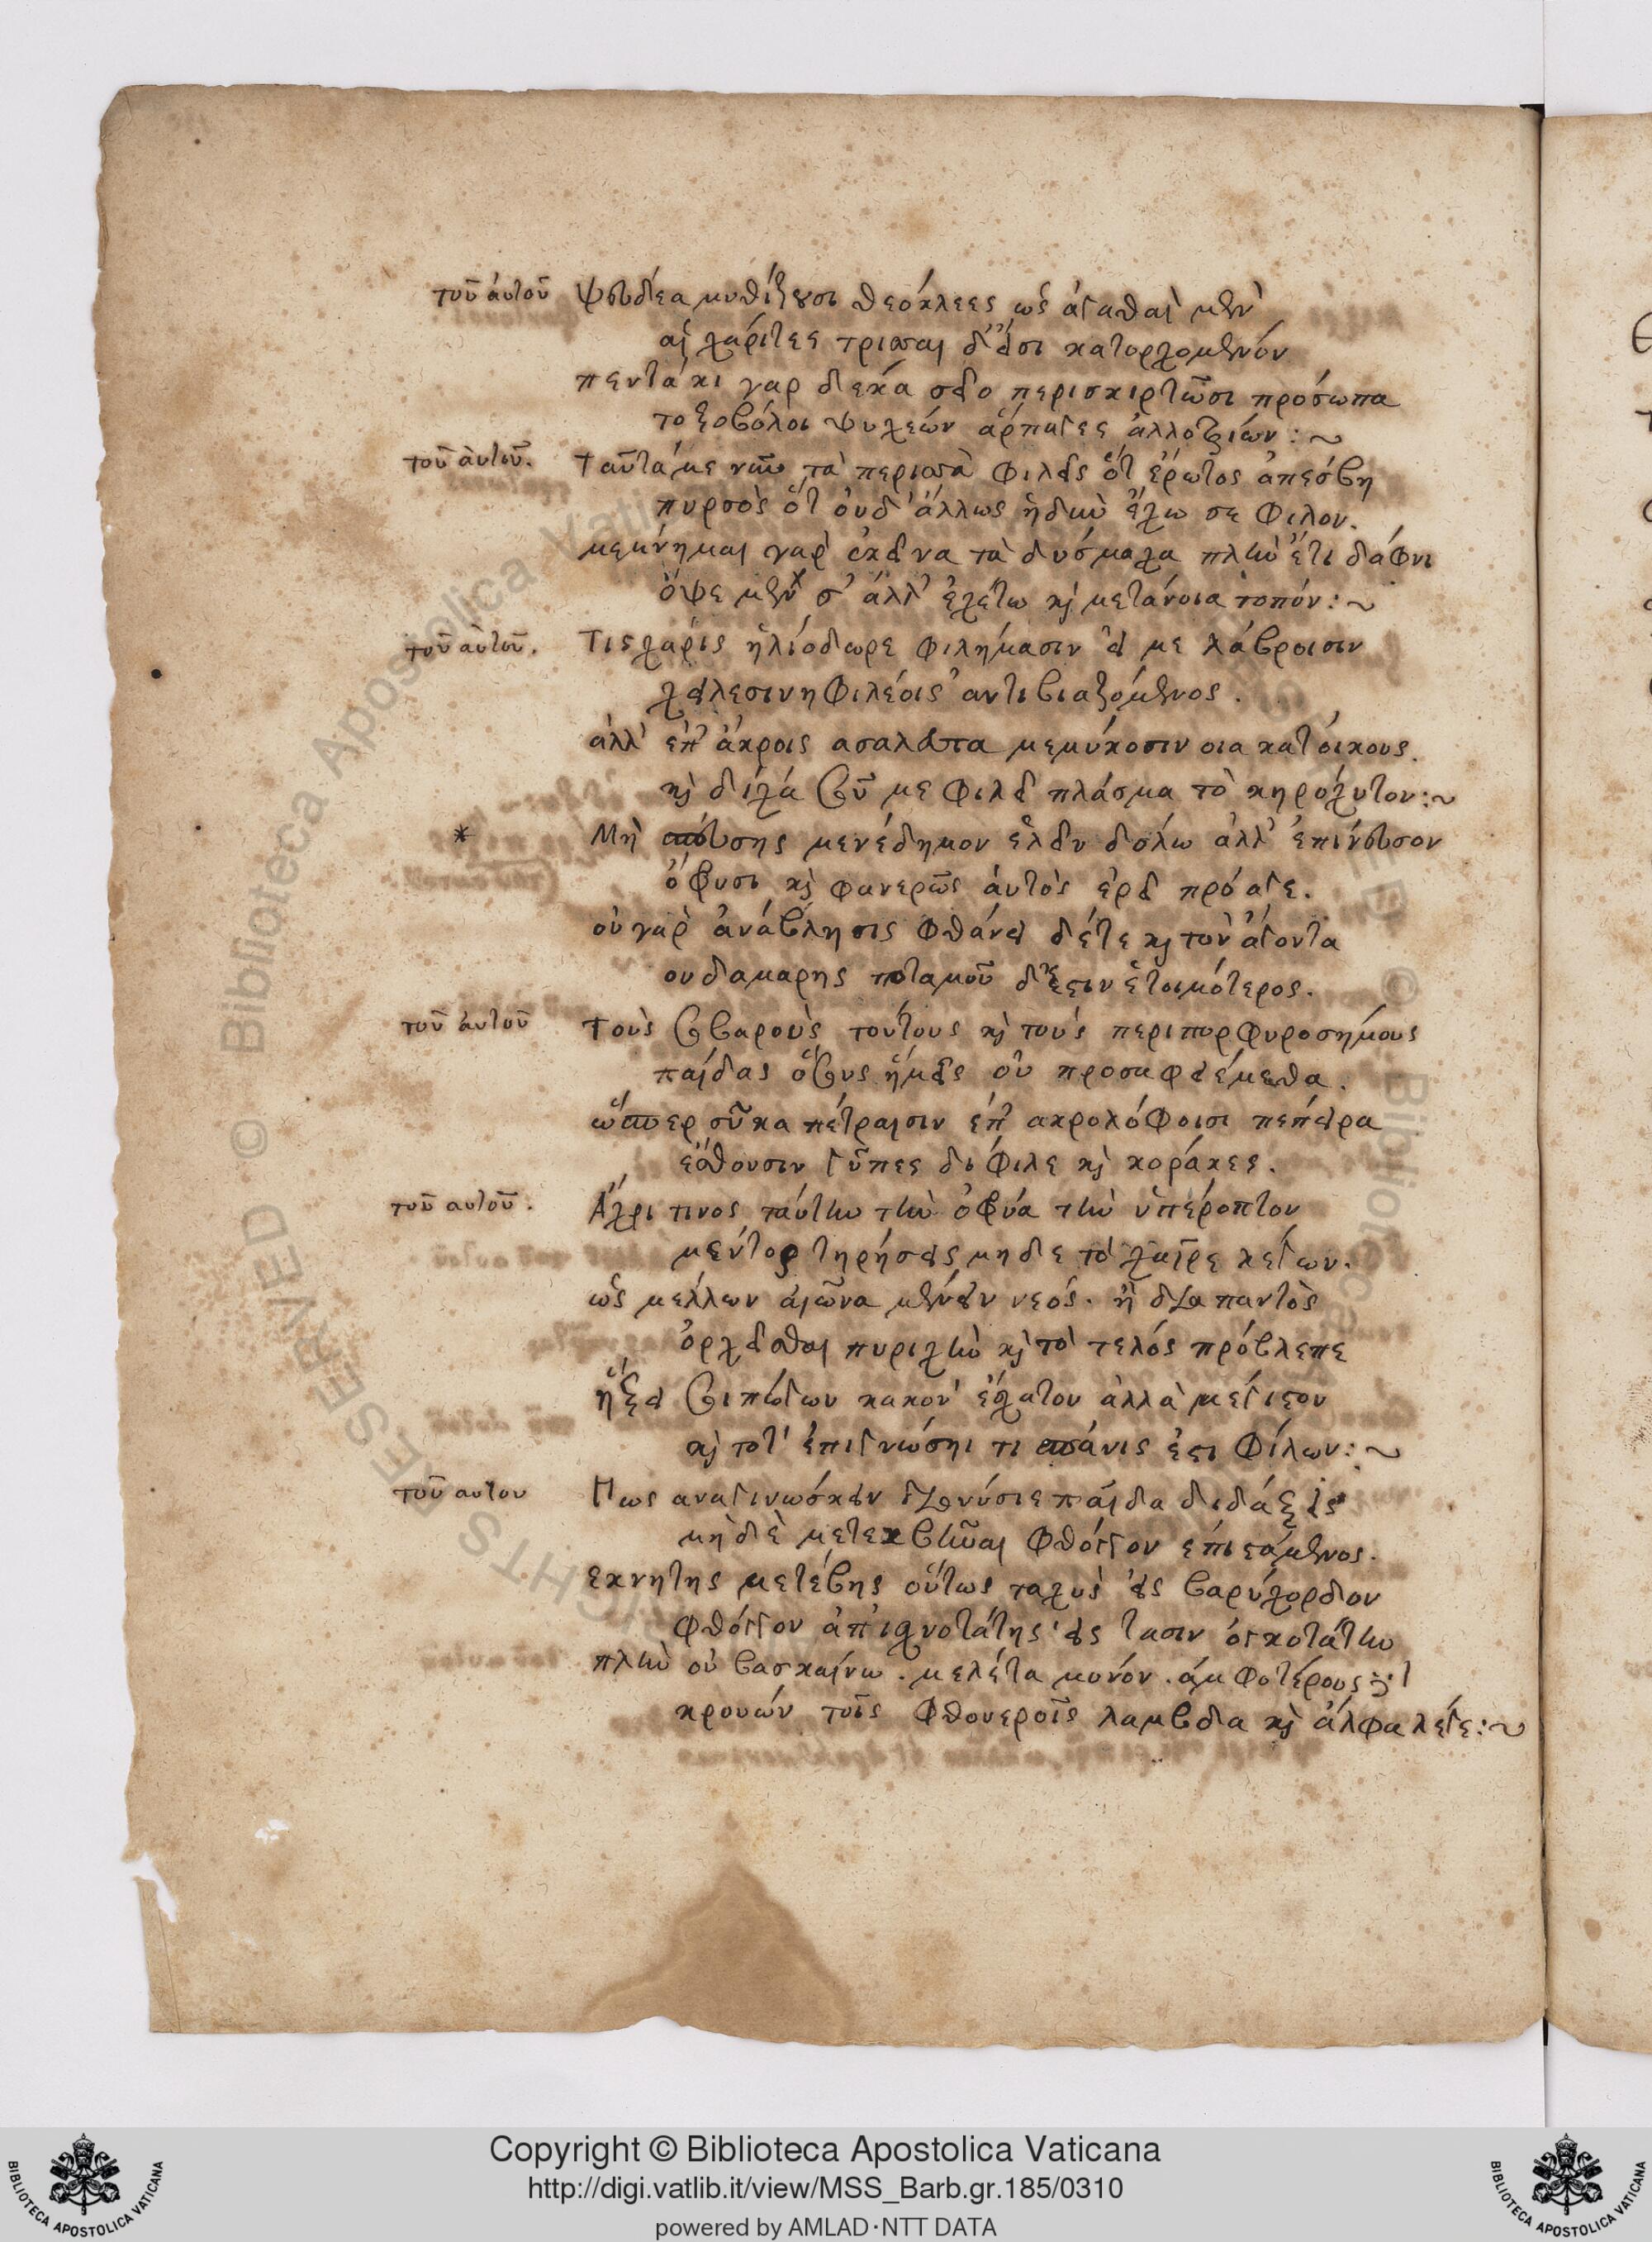 τοῦ ἀυτοῦ ψευδέα μυθίζουσι θεόκλεες ὡς ἀγαθαὶ μὲν
αἱ χάριτες τρισσαὶ δ' εἰσι κατορχομενόν
πεντάκι γαρ δεκα σεο περισκιρτῶσι πρόσωπα
τοξοβόλοι ψυχεών ἅρπαγες ἀλλοτρίων :~
τοῦ ἀυτοῦ. ταῦτά με νῦν τὰ περισσὰ φιλεῖς ὅτ ἔρωτος ἀπεσβη
πυρσὸς ὅτ ὀυδ' ἄλλως ἡδὺν ἔχω σε φιλον.
μεμνημαι γαρ ἐκεῖνα τὰ δυσμαχα πλὴν ἔτι δάφνι
ὄψε μεν σ' ἀλλ' ἐχέτω καὶ μετάνοια τοπόν :~
τοῦ ἀυτοῦ. τις χάρις ἡλιόδωρε φιλήμασιν εἴ με λάβροισιν
χείλεσιν μη φιλέοις ἀντιβιαζόμενος.
ἀλλ' ἐπ' ἄκροις ασαλευτα μεμυκοσιν οια κατ οἴκους.
καὶ δίχά σοῦ με φιλεῖ πλάσμα τὸ κηρόχυτον :~
* Μὴ σπεύσης μενέδημον ἑλεῖν δολω ἀλλ' ἐπίνευσον
ὀφρυσι καὶ φανερῶς ἀυτὸς ἐρεῖ πρόαγε.
οὐ γαρ ἀνάβλησις φθάνει δέτε καὶ τον ἄγοντα
ουδ αμαρης ποταμοῦ δ' ἔστιν ἑτοιμότερος.
τοῦ ἀυτοῦ τοὺς σοβαροὺς τούτους καὶ τοὺς περιπορφυροσήμους
παίδας ὅσους ἡμεῖς οὐ προσεφιέμεθα.
ὥσπερ σῦκα πέτραισιν ἐπ' ακρολόφοισι πεπειρα
ἔσθουσιν γῦπες διφιλε καὶ κορακες.
τοῦ αυτοῦ. Ἄχρι τινος ταύτην τὴν ὀφρύα τὴν ὑπέροπτον
μεντορ τηρήσεις μηδε τὸ χαῖρε λεγων.
ὡς μέλλων αἰῶνα μένειν νεός. ἢ δια παντὸς
ὀρχεῖσθαι πυριχὴν καὶ τὸ τελός πρόβλεπε
ἥξει σοι πώγων κακον ἔσχατον ἀλλὰ μέγιστον
καὶ τοτ' ἐπιγνώσηι τι σπάνις ἐστι φίλων :~
τοῦ αυτου Πως αναγινωσκειν διονύσιε παίδα διδάξεις
μὴδε μετεκβῆναι φθόγγον ἐπιστάμενος.
εκ νητης μετέβης οὕτως ταχὺς εἰς βαρύχορδον
φθόγγον ἀπ' ἰσχνοτάτης εἰς τασιν ὀγκοτάτην
πλὴν οὐ βασκαίνω. μελέτα μονόν. ἀμφοτέρους
κρουών τοῖς φθονεροῖς λαμβδα καὶ ἄλφα λέγε :~
Copyright © Biblioteca Apostolica Vaticana
http://digi.vatlib.it/view/MSS_Barb.gr.185/0310
powered by AMLAD·NTT DATA
BIBLIOTECA APOSTOLICA VATICANA
BIBLIOTECA APOSTOLICA VATICANA